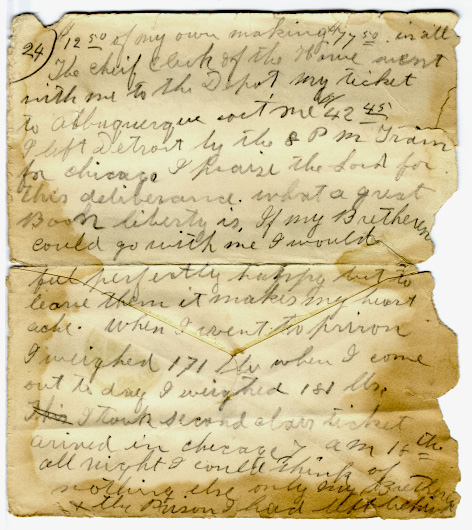 24 $12 50 of my own making $77 50 in all
The cheif clerk of the House went
with me to the Depot my ticket
to Albuquerque cost me $42 45
I left Detroit by the 8 P m Train
for chicago I praise the Lord for
this deliverance. what a great
Boon liberty is, If my Bretheren
could go with me I would
feel perfectly happy but to
leave them it makes my heart
ache. When I went to prison
I weighed 171 lbs when I come
out to day I weighed 181 lbs
This I took second class ticket
arived in chicago 7 a m 16 the
all night I could think of
nothing else only my Bretheren
& the Prison I had left behind